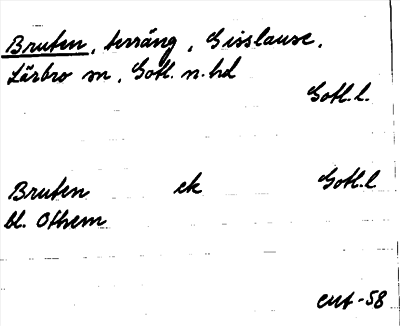 Bruten, terräng, Gisslause,
Lärbro sn, Gotl. n. hd
Gotl. l.
Bruten ek Gotl. l
bl. Othem
EUA-58